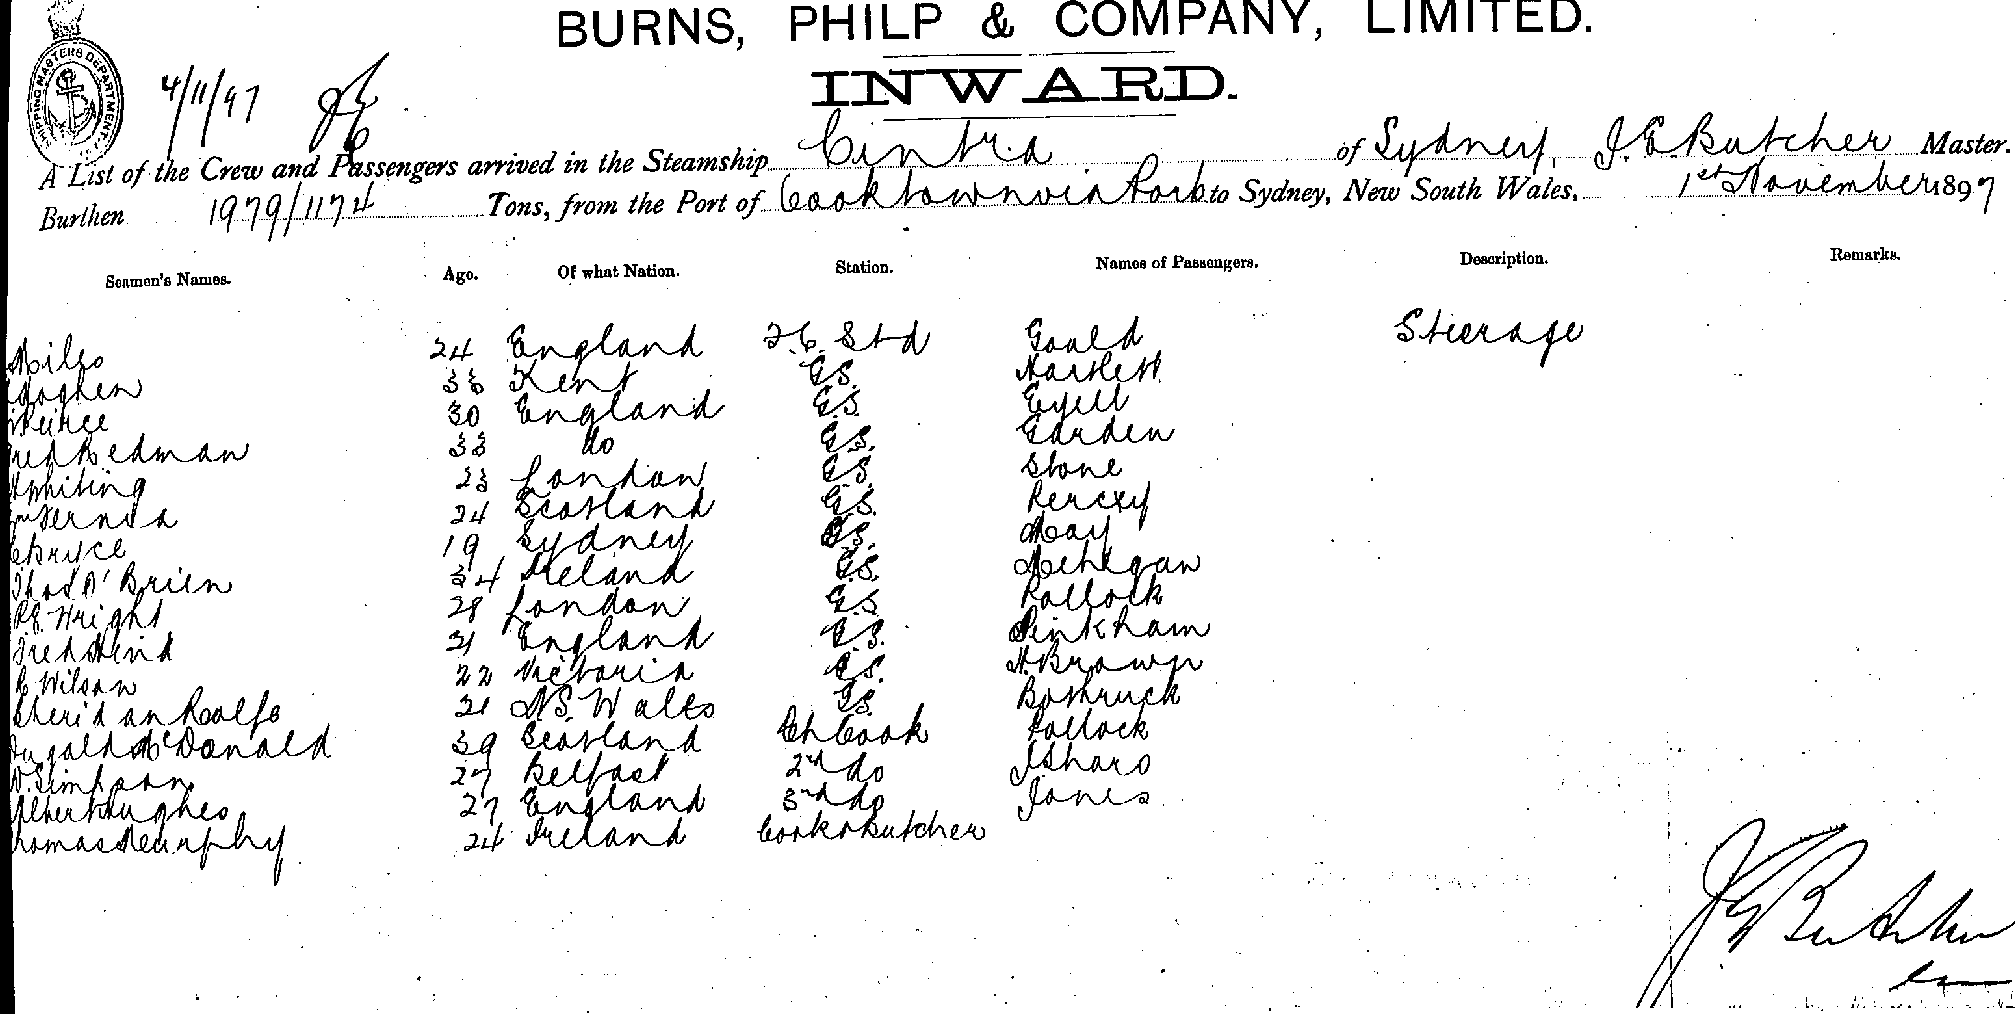 BURNS, PHILP & COMPANY, LIMITED.
INWARD.
SHIPPING MASTERS DEPARTMENT
4/11/97
A List of the Crew and Passengers arrived in the Steamship Cintra of Sydney, J. E. Butcher Master.
Burthen 1979/1174 Tons, from the Port of Cooktown via Ports to Sydney, New South Wales, 1st November 1897
Seamen's Names. Age. Of what Nation. Station. Names of Passengers. Description. Remarks.
24 England 2.C. Std Gould Steerage
Kent G.S. Hartlett
30 England G.S. Eyell
Redman 33 do G.S. Garden
Whiting 23 London G.S. Stone
24 Scotland G.S.
Bryce 19 Sydney G.S. May
Thos O'Brien 34 Ireland G.S. Mehegan
Wright 28 London G.S. Pollock
Fred Hind 21 England G.S. Pinkham
Wilson 22 Victoria G.S. Brown
Sheridan Roalfe 21 N.S. Wales G.S.
Dugald McDonald 39 Scotland Ch Cook Pollock
Simpson 27 Belfast 2nd do
Albert Hughes 27 England 3rd do Jones
Thomas Murphy 24 Ireland Cook & Butcher
J E Butcher